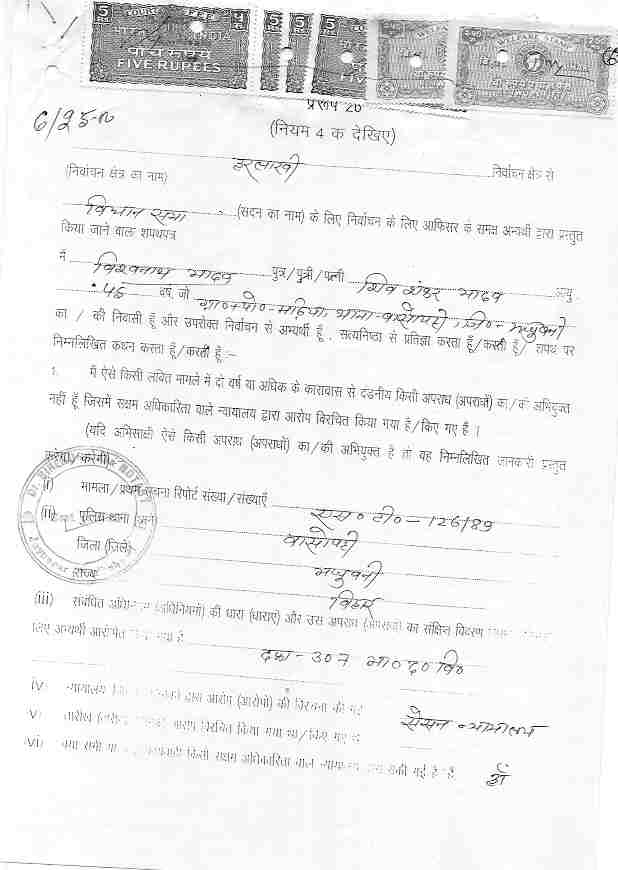 5 RS
FIVE RUPEES
पांच रुपये
INDIA
FIVE RUPEES
6/25-N
प्ररूप 26
(नियम 4 क देखिए)
हरलाखी निर्वाचन क्षेत्र से
(निर्वाचन क्षेत्र का नाम)
विधान सभा (सदन का नाम) के लिए निर्वाचन के लिए आफिसर के समक्ष अभ्यर्थी द्वारा प्रस्तुत
किया जाने वाला शपथपत्र
मैं विश्वनाथ यादव पुत्र/पुत्री/पत्नी शिव शंकर यादव आयु
45 वर्ष, जो ग्रा०+पो०- थाना-बासोपट्टी, जि०-मधुबनी
का / की निवासी हूँ और उपरोक्त निर्वाचन से अभ्यर्थी हूँ , सत्यनिष्ठा से प्रतिज्ञा करता हूँ/करती हूँ/ शपथ पर
निम्नलिखित कथन करता हूँ/करती हूँ:-
1. मैं ऐसे किसी लंबित मामले में दो वर्ष या अधिक के कारावास से दंडनीय किसी अपराध (अपराधों) का/की अभियुक्त
नहीं हूँ जिसमें सक्षम अधिकारिता वाले न्यायालय द्वारा आरोप विरचित किया गया है/किए गए हैं ।
(यदि अभिसाक्षी ऐसे किसी अपराध (अपराधों) का/की अभियुक्त है तो वह निम्नलिखित जानकारी प्रस्तुत
करेगा/करेगी):-
(i) मामला/प्रथम सूचना रिपोर्ट संख्या/संख्याएँ एस० टी०-126/89
(ii) पुलिस थाना (थाने) बासोपट्टी
जिला (जिले) मधुबनी
राज्य बिहार
(iii) संबंधित अधिनियम (अधिनियमों) की धारा (धाराएं) और उस अपराध (अपराधों) का संक्षिप्त विवरण
लिए अभ्यर्थी आरोपित किया गया है
दफा-307 भा०द०वि०
iv) न्यायालय द्वारा आरोप (आरोपों) की विरचना की गई
सेसन न्यायालय
v) तारीख आरोप विरचित किया गया था/किए गए थे
vi) क्या सभी या कार्यवाही किसी सक्षम अधिकारिता वाले न्यायालय द्वारा रोकी गई है/हैं हाँ